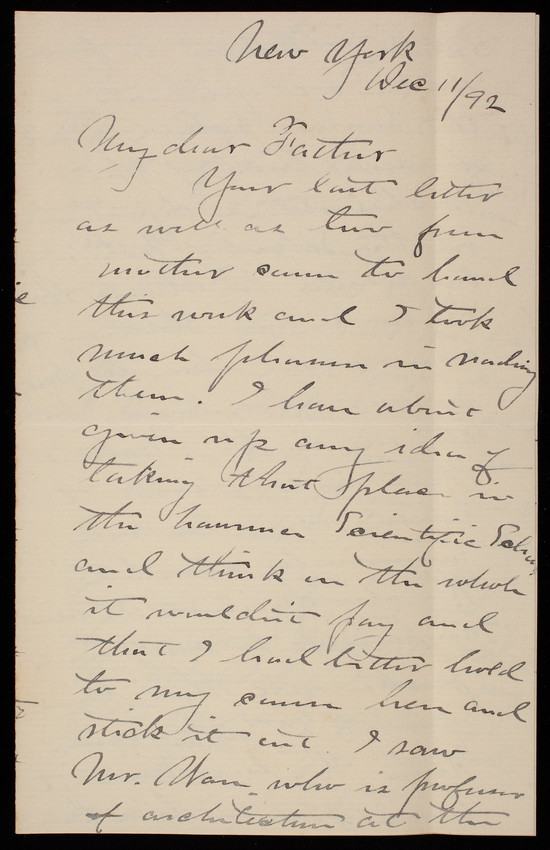 New York
Dec 11/92
My dear Father
Your last letter
as well as two from
mother came to hand
this week and I took
much pleasure in reading
them. I have about
given up any idea of
taking that place in
the Lawrence Scientific School
and think on the whole
it wouldn't pay and
that I had better hold
to my course here and
stick it out. I saw
Mr. Ware who is professor
of architecture at the